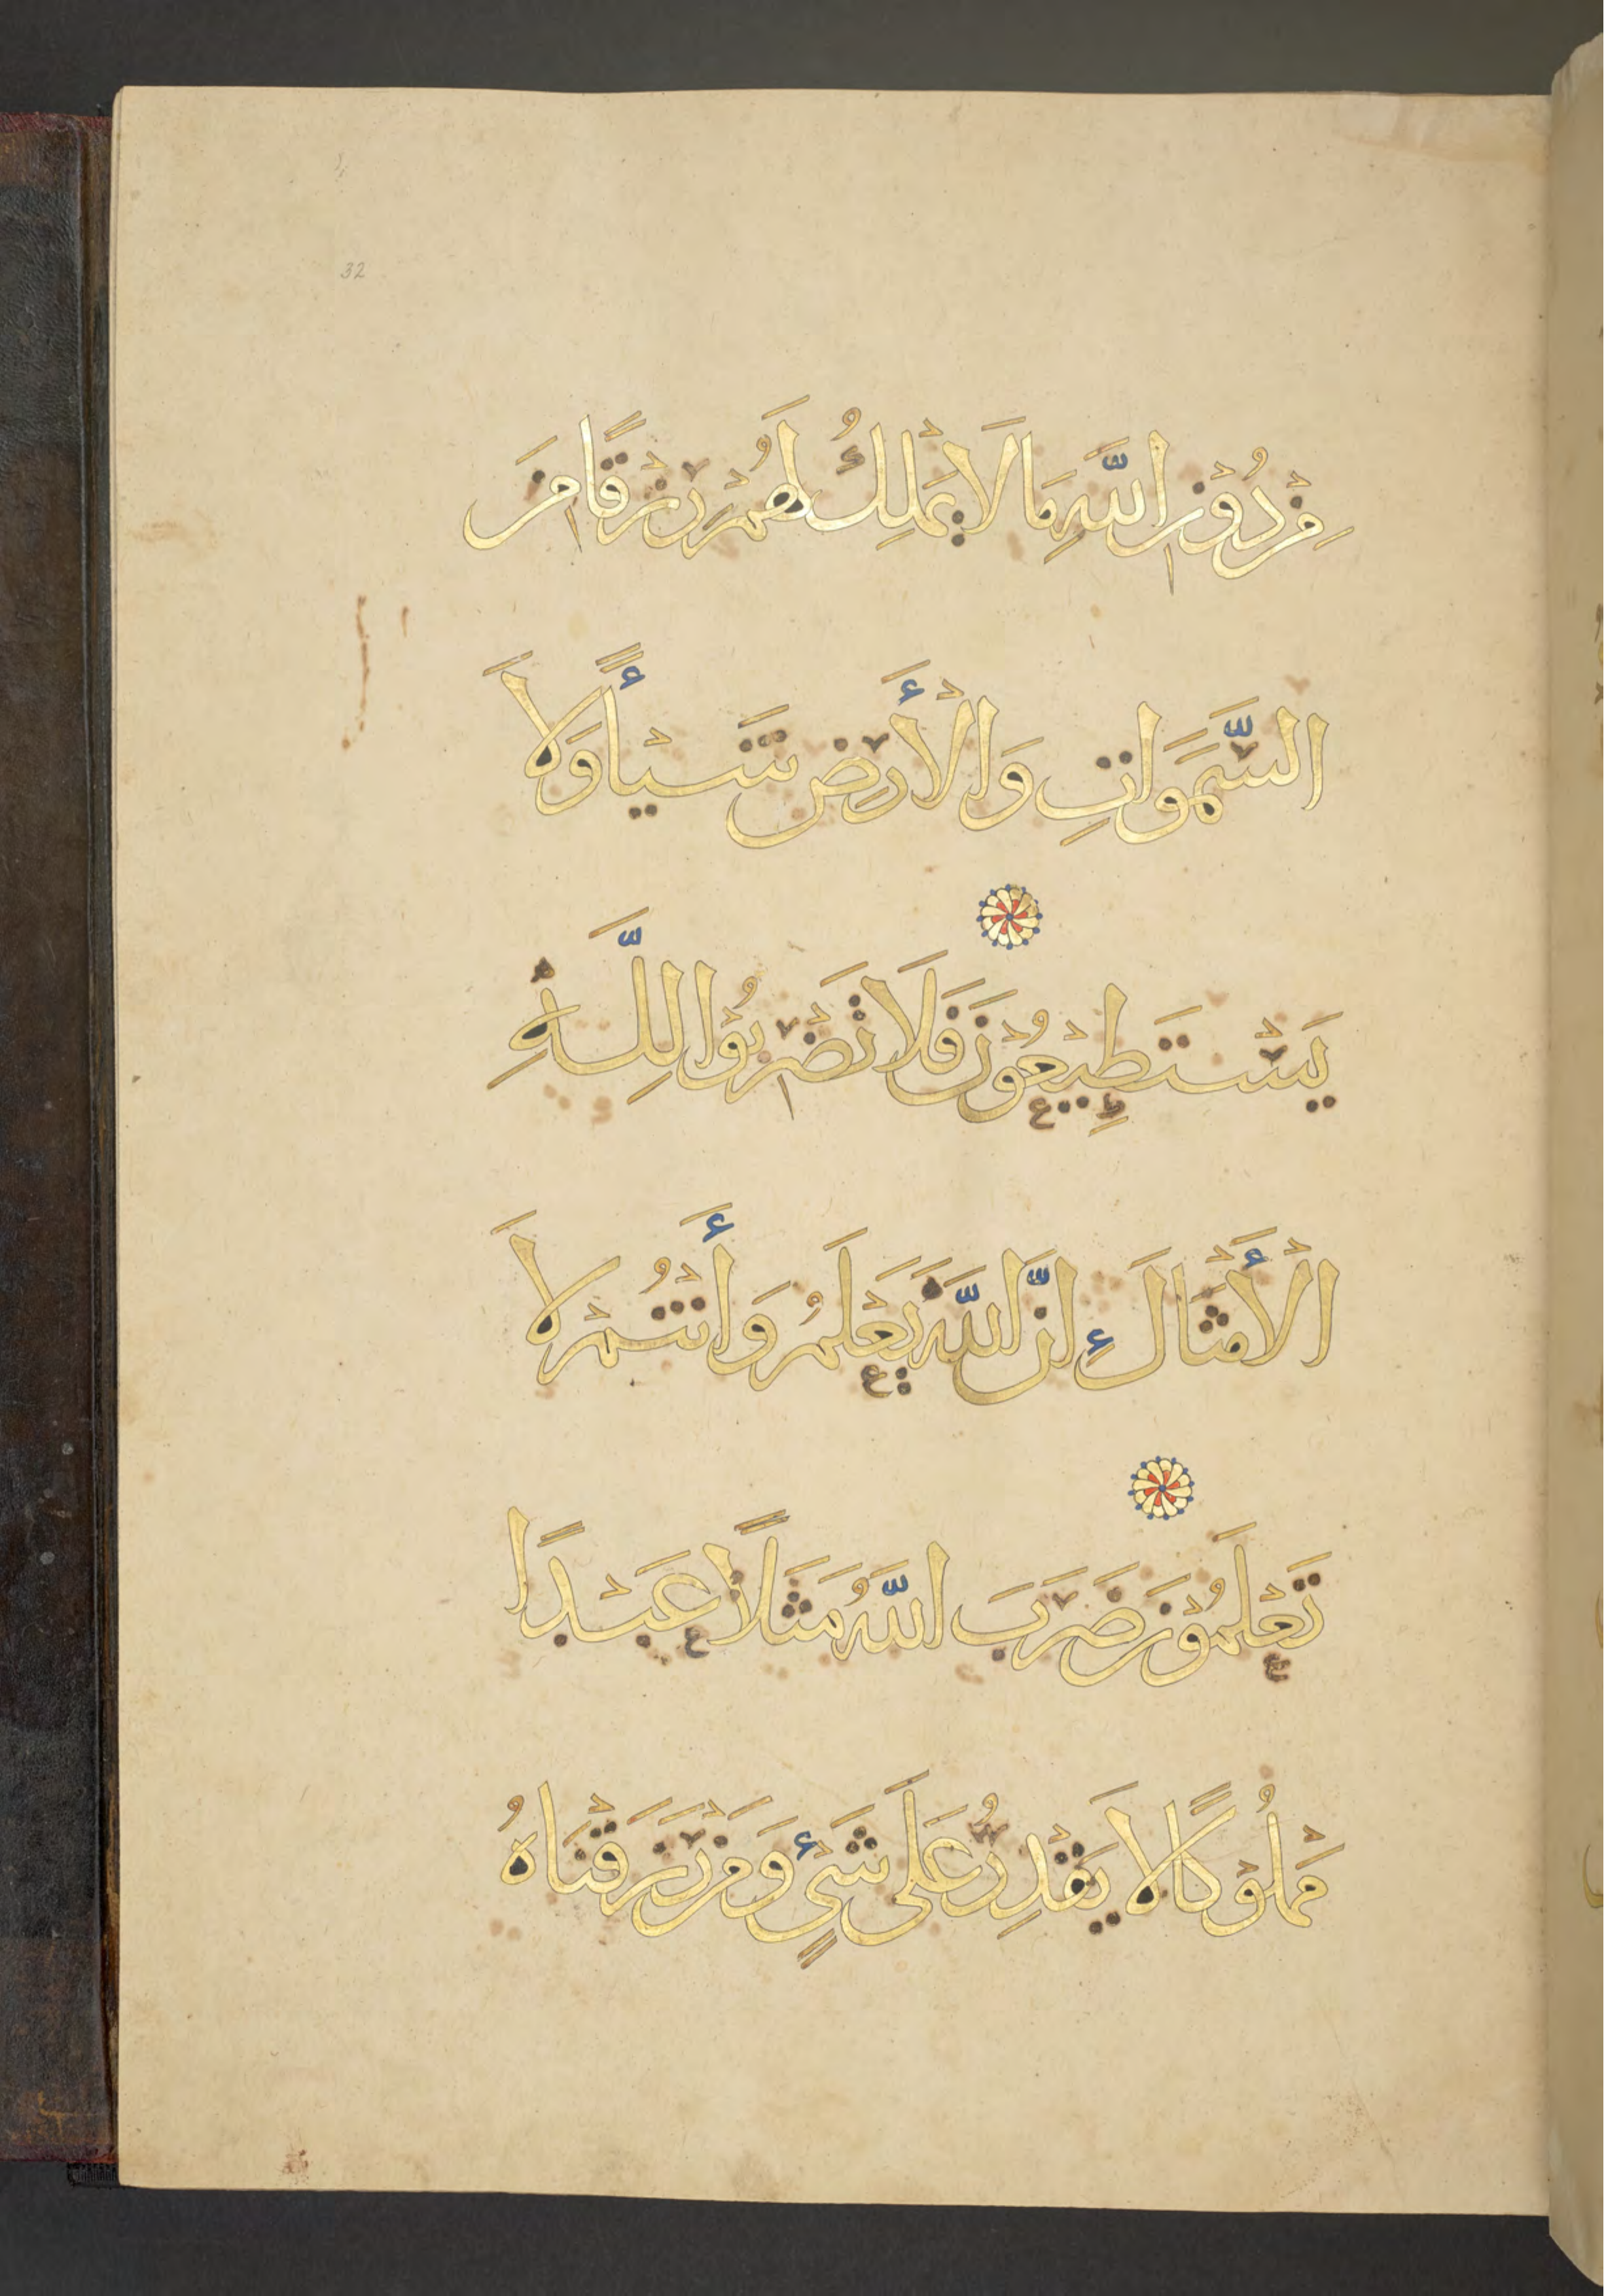 32
مِنْ دُوْنِ اللَّهِ مَا لَا يَمْلِكُ لَهُمْ رِزْقًا مِنَ
السَّمَوَاتِ وَالْأَرْضِ شَيْأً وَلَا
يَسْتَطِيْعُوْنَ فَلَا تَضْرِبُوْا لِلَّهِ
الْأَمْثَالَ إِنَّ اللَّهَ يَعْلَمُ وَأَنْتُمْ لَا
تَعْلَمُوْنَ ضَرَبَ اللَّهُ مَثَلًا عَبْدًا
مَمْلُوْكًا لَا يَقْدِرُ عَلَى شَيْءٍ وَمَنْ رَزَقْنَاهُ